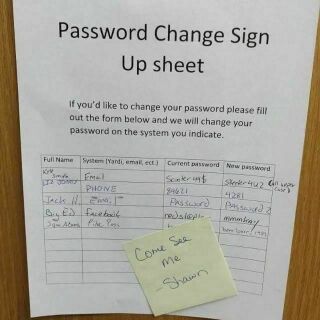 Password Change Sign
Up sheet
If you'd like to change your password please fill
out the form below and we will change your
password on the system you indicate.
Full Name System (Yardi, email, ect.) Current password New password
Smith Email
Liz Jones PHONE 84621 4281
Jack H. Email Password Password 2
Big Ed Facebook
Come See
Me
-Shawn